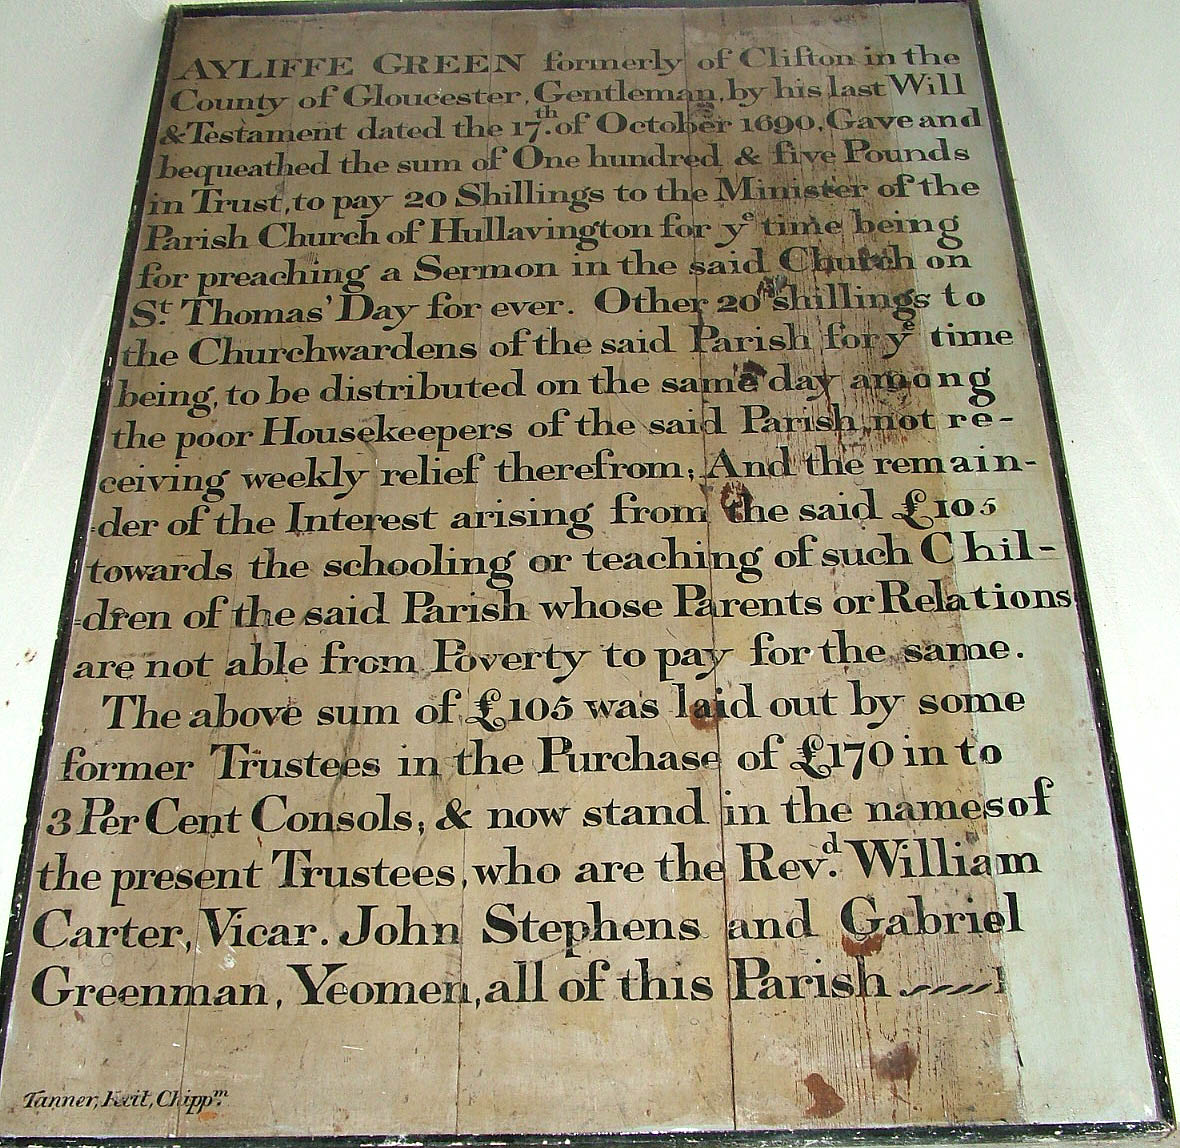 AYLIFFE GREEN formerly of Clifton in the
County of Gloucester, Gentleman, by his last Will
& Testament dated the 17th. of October 1690, Gave and
bequeathed the sum of One hundred & five Pounds
in Trust, to pay 20 Shillings to the Minister of the
Parish Church of Hullavington for ye time being
for preaching a Sermon in the said Church on
St. Thomas' Day for ever. Other 20 shillings to
the Churchwardens of the said Parish for ye time
being, to be distributed on the same day among
the poor Housekeepers of the said Parish, not re-
ceiving weekly relief therefrom; And the remain-
-der of the Interest arising from the said £105
towards the schooling or teaching of such Chil-
-dren of the said Parish whose Parents or Relations
are not able from Poverty to pay for the same.
The above sum of £105 was laid out by some
former Trustees in the Purchase of £170 in to
3 Per Cent Consols; & now stand in the names of
the present Trustees, who are the Revd. William
Carter, Vicar. John Stephens and Gabriel
Greenman, Yeomen, all of this Parish
Tanner, Fecit, Chippm.